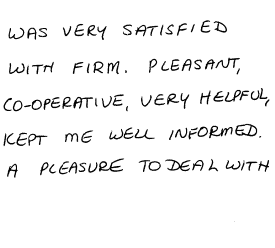 WAS VERY SATISFIED
WITH FIRM. PLEASANT,
CO-OPERATIVE, VERY HELPFUL,
KEPT ME WELL INFORMED.
A PLEASURE TO DEAL WITH